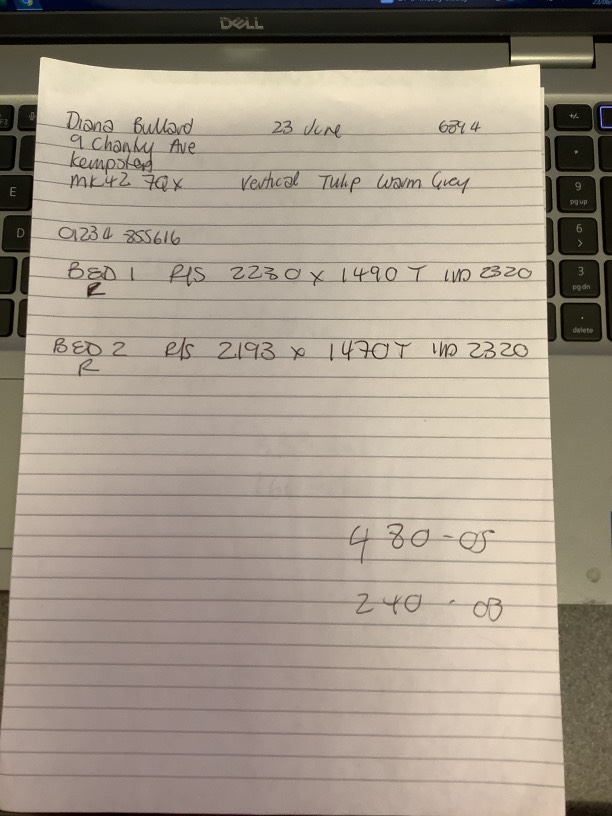 DELL
Diana Bullard 23 June 6894
9 Chantry Ave
Kempston
MK42 7QX Vertical Tulip Warm Grey
01234 855616
BED 1 R/S 2230 x 1490 T IND 2320
R
BED 2 R/S 2193 x 1470 T IND 2320
R
480-05
240.03
E
D
+/-
*
9
pg up
6
>
3
pg dn
.
delete